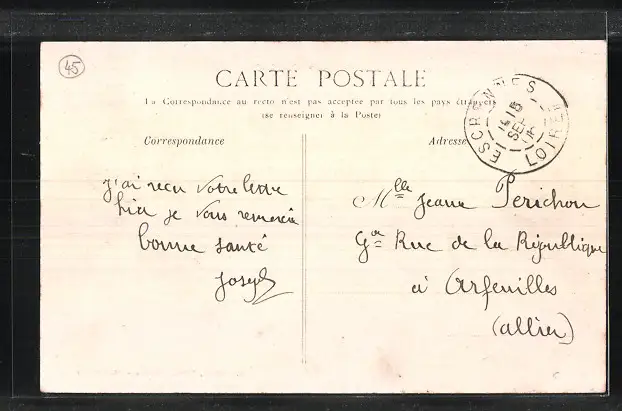 45
CARTE POSTALE
La Correspondance au recto n'est pas acceptée par tous les pays étrangers
(se renseigner à la Poste)
Correspondance
Adresse
ESCRENNES
LOIRET
15
SEPT
J'ai recu votre lettre
hier je vous remercie
bonne santé
Joseph
Mlle Jeanne Perichon
Gde Rue de la République
à Arfeuilles
(allier)